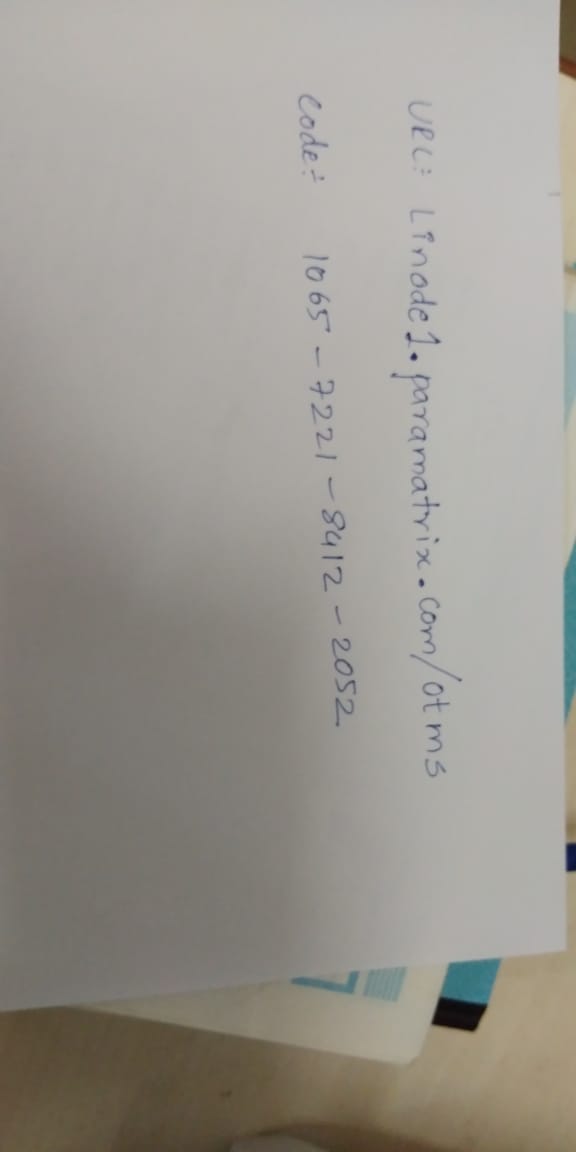 URL: Linode1.paramatrix.com/otms
Code:- 1065-7221-8412-2052